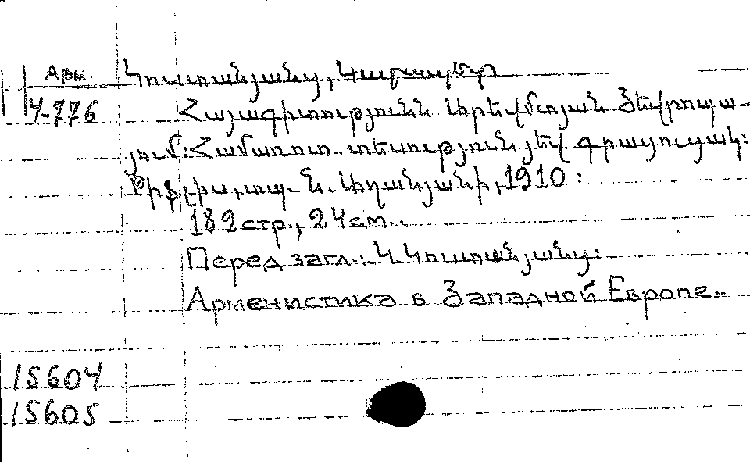 Арм. Կոստանյանց, Կարապետ
4-776 Հայագիտությունն Արեվմտյան Յեվրոպա-
յում: Համառոտ տեսություն յեվ գրացուցակ:
Թիֆլիս, տպ. Ն. Աղանյանի, 1910:
182 стр., 24 см.
Перед загл.: Կ. Կոստանյանց:
Арменистика в Западной Европе.
15604
15605